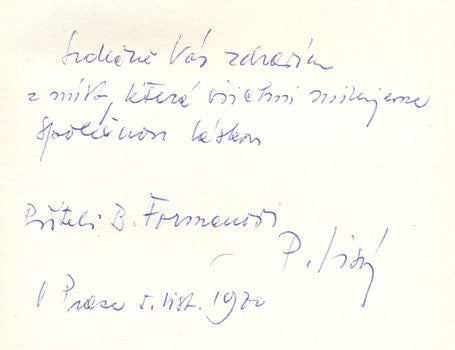 Srdečně Vás zdravím
z míst, která všichni milujeme
společnou láskou
Příteli B. Formanovi
P. Lisý
V Praze 5. list. 1970